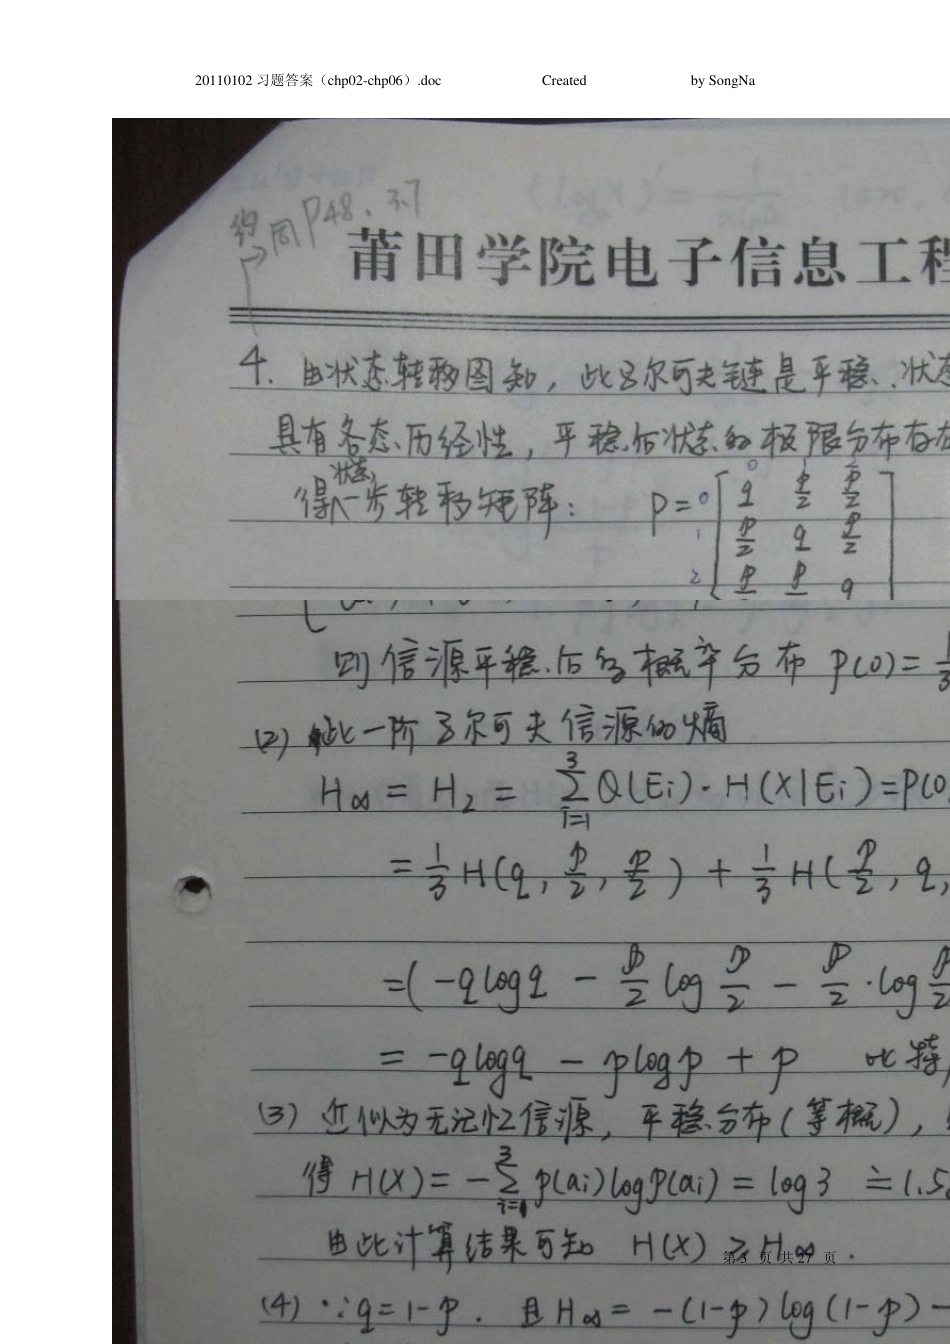 20110102 习题答案（chp02-chp06）.doc Created by SongNa
同 P48. 3.7
莆田学院电子信息工程
4. 由状态转移图知，此马尔可夫链是平稳、状态
具有各态历经性，平稳后状态的极限分布存在
状态
得一步转移矩阵：
0 1 2
P = 0 [ q p/2 p/2 ]
1 p/2 q p/2
2 p p q
则信源平稳后的概率分布 P(0) = 1/3
(2) 此一阶马尔可夫信源的熵
H∞ = H₂ = Σ_{i=1}^{3} Q(Ei)·H(X|Ei) = P(0
= 1/3 H(q, p/2, p/2) + 1/3 H(p/2, q,
= (-q log q - p/2 log p/2 - p/2 · log p/2
= -q log q - p log p + p
(3) 近似为无记忆信源，平稳分布(等概)，
得 H(X) = -Σ_{i=1}^{3} p(ai) log p(ai) = log 3 ≐ 1.5
由此计算结果可知 H(X) > H∞ .
第 3 页 共 27 页
(4) ∵ q = 1-p . 且 H∞ = -(1-p) log(1-p) -